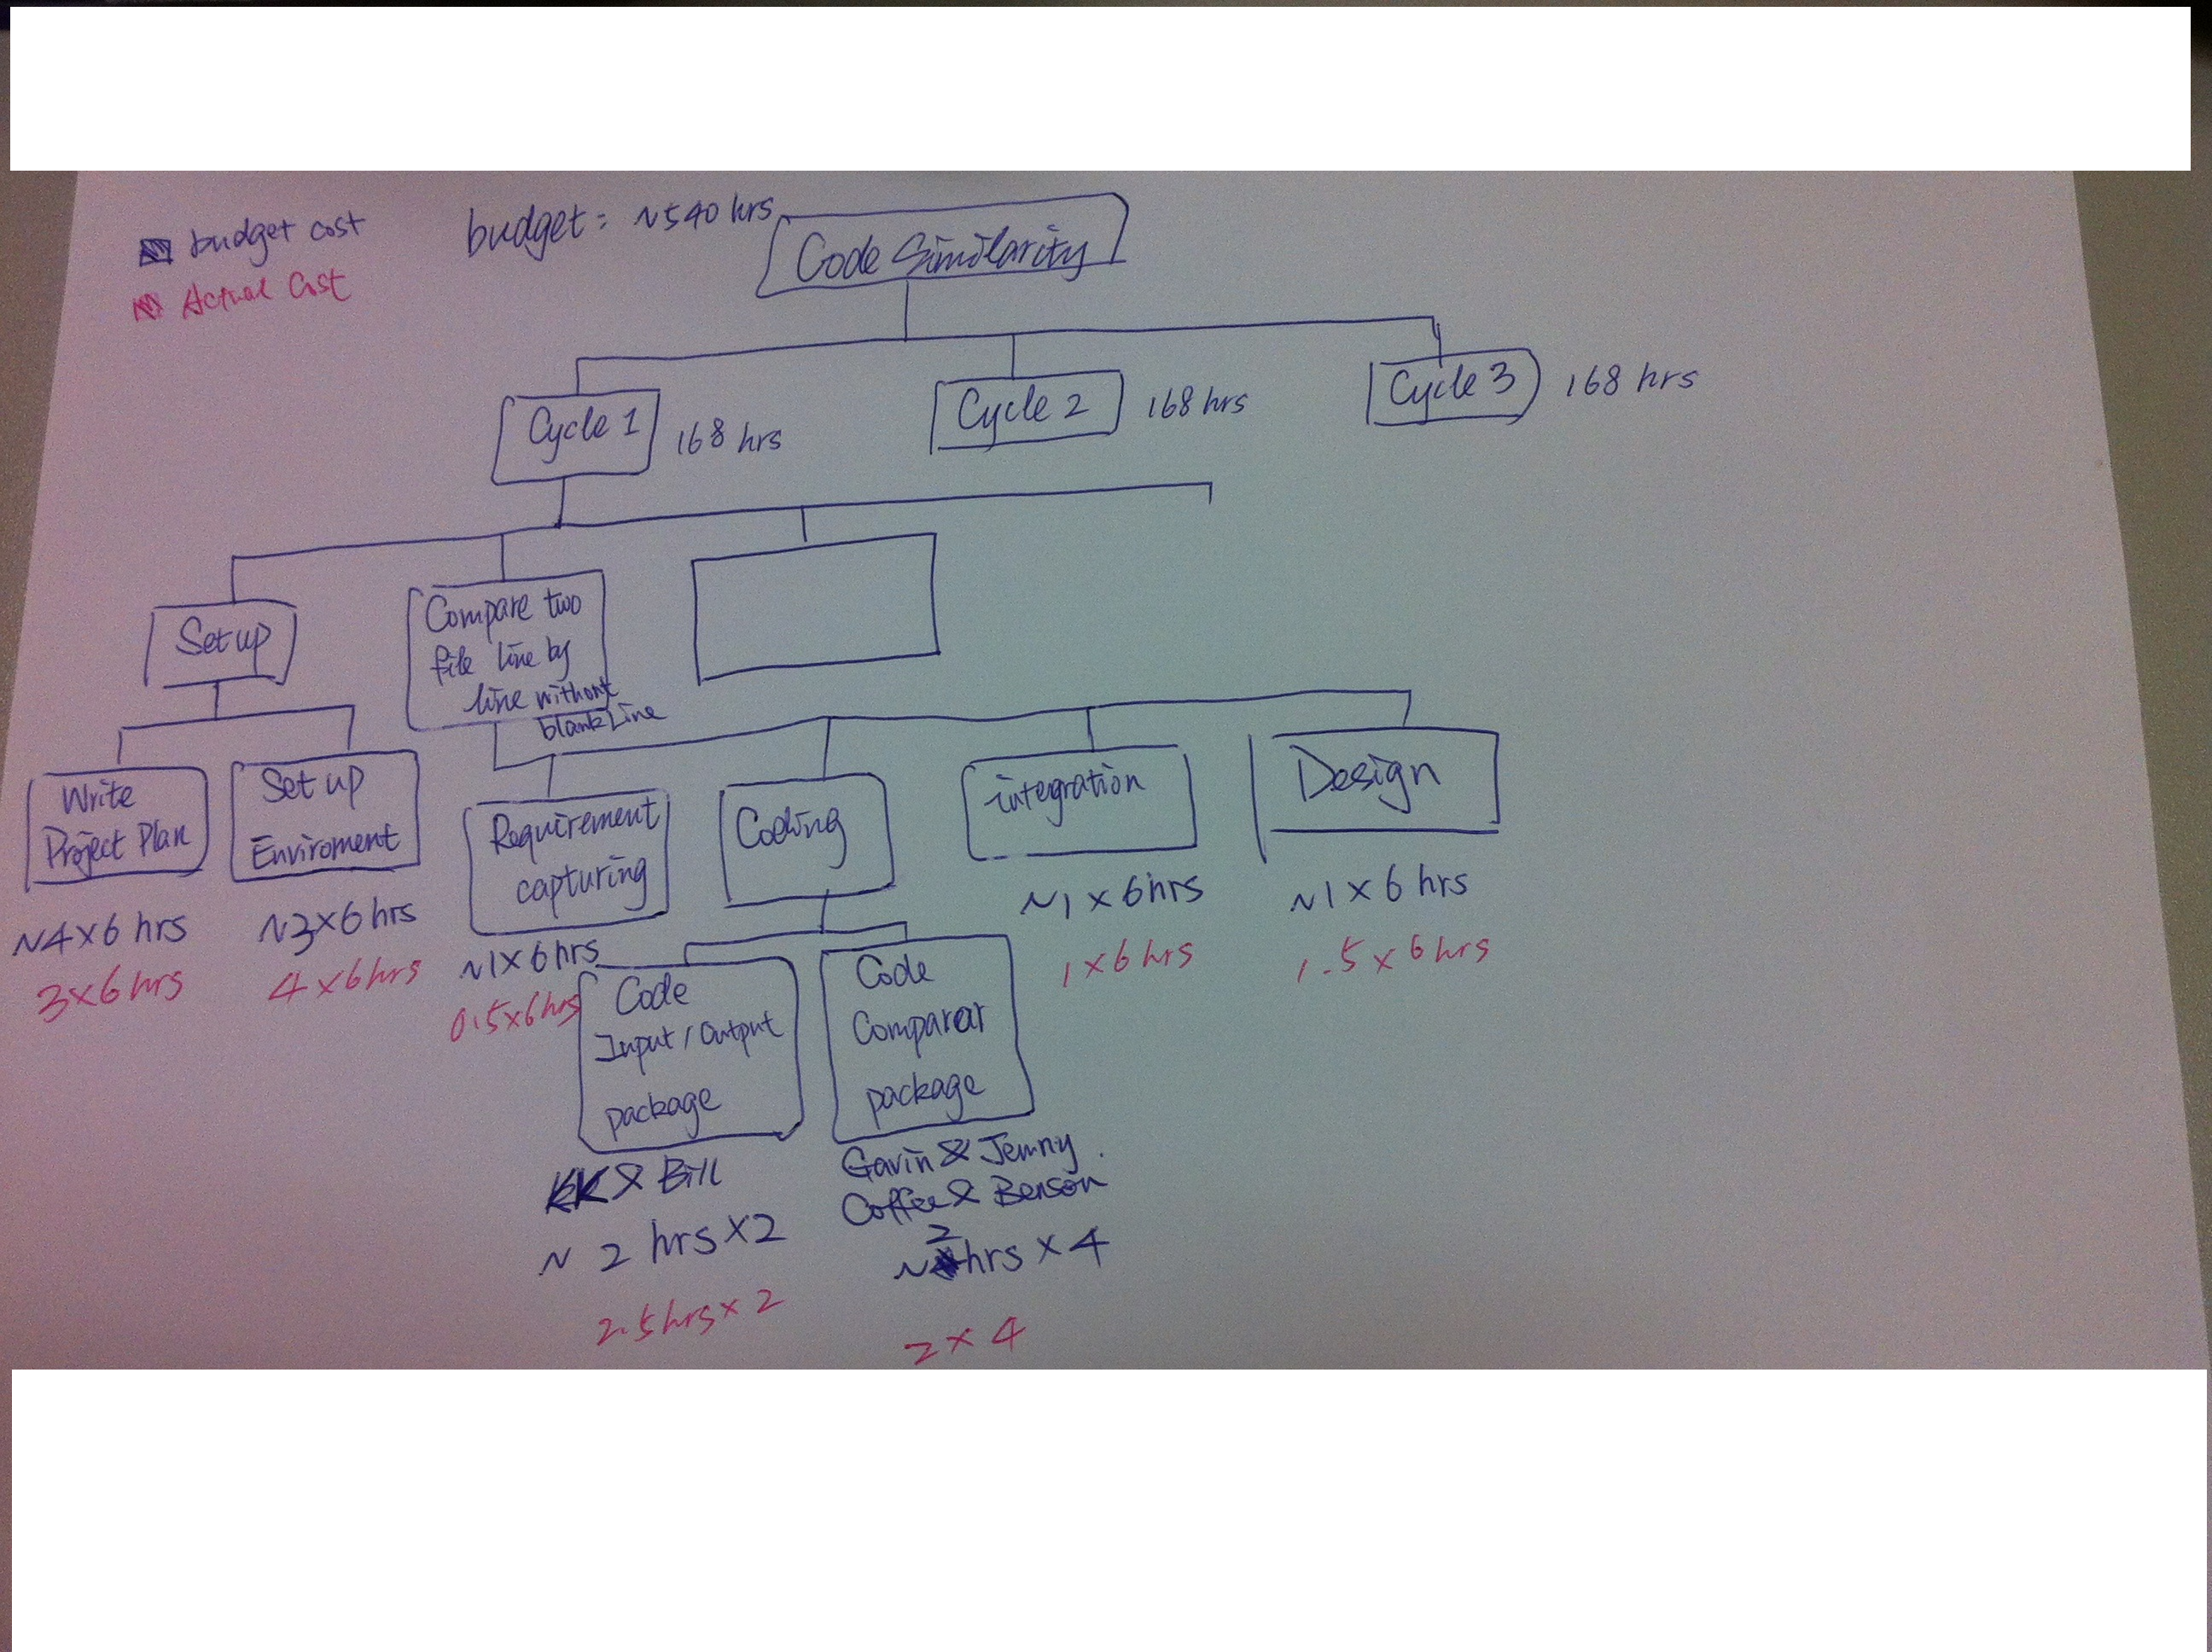 budget cost
Actual Cost
budget: ~540 hrs
Code Similarity
Cycle 1
168 hrs
Cycle 2
168 hrs
Cycle 3
168 hrs
Set up
Compare two
file line by
line without
blank Line
Write
Project Plan
~4×6 hrs
3×6 hrs
Set up
Enviroment
~3×6 hrs
4×6 hrs
Requirement
capturing
~1×6 hrs
0.5×6 hrs
Coding
integration
~1×6 hrs
1×6 hrs
Design
~1×6 hrs
1.5×6 hrs
Code
Input/Output
package
KK & Bill
~ 2 hrs×2
2.5 hrs×2
Code
Comparar
package
Gavin & Jenny.
Coffee & Benson
~2 hrs × 4
2 × 4